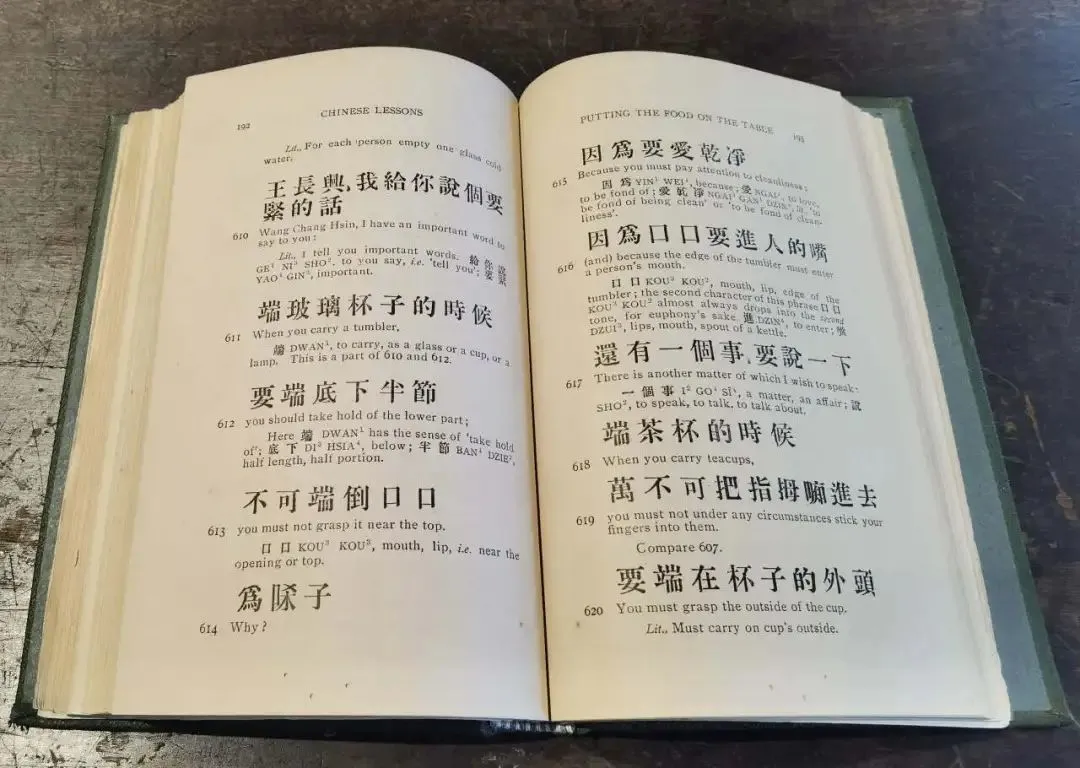 192
CHINESE LESSONS
Lit., For each person empty one glass cold
water.
王長興,我給你說個要
緊的話
610 Wang Chang Hsin, I have an important word to
say to you:
Lit., I tell you important words. 給你說
GE¹ NI³ SHO². to you say, i.e. 'tell you'; 要緊
YAO⁴ GIN³, important.
端玻璃杯子的時候
611 When you carry a tumbler,
端 DWAN¹, to carry, as a glass or a cup, or a
lamp. This is a part of 610 and 612.
要端底下半節
612 you should take hold of the lower part;
Here 端 DWAN¹ has the sense of 'take hold
of'; 底下 DI³ HSIA⁴, below; 半節 BAN⁴ DZIE²,
half length, half portion.
不可端倒口口
613 you must not grasp it near the top.
口口 KOU³ KOU³, mouth, lip, i.e. near the
opening or top.
爲子
614 Why?
PUTTING THE FOOD ON THE TABLE
193
因爲要愛乾凈
615 Because you must pay attention to cleanliness;
因爲 YIN¹ WEI⁴, because; 愛 NGAI⁴, to love,
to be fond of; 愛乾凈 NGAI⁴ GAN¹ DZIN⁴, lit. 'to
be fond of being clean' or 'to be fond of clean-
liness'.
因爲口口要進人的嘴
616 (and) because the edge of the tumbler must enter
a person's mouth.
口口 KOU³ KOU², mouth, lip, edge of the
tumbler; the second character of this phrase 口口
KOU³ KOU² almost always drops into the second
tone, for euphony's sake. 進 DZIN⁴, to enter; 嘴
DZUI³, lips, mouth, spout of a kettle.
還有一個事,要說一下
617 There is another matter of which I wish to speak:
一個事 I² GO⁴ SÏ⁴, a matter, an affair; 說
SHO², to speak, to talk, to talk about.
端茶杯的時候
618 When you carry teacups,
萬不可把指拇進去
619 you must not under any circumstances stick your
fingers into them.
Compare 607.
要端在杯子的外頭
620 You must grasp the outside of the cup.
Lit., Must carry on cup's outside.